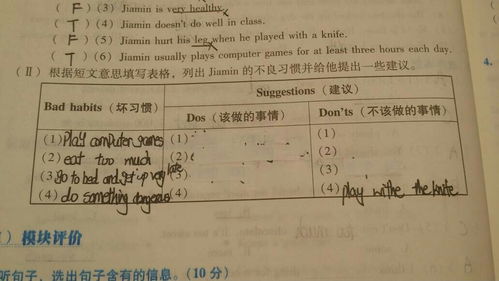 ( F ) (3) Jiamin is very healthy.
( T ) (4) Jiamin doesn't do well in class.
( F ) (5) Jiamin hurt his leg when he played with a knife.
( T ) (6) Jiamin usually plays computer games for at least three hours each day.
(Ⅱ) 根据短文意思填写表格，列出 Jiamin 的不良习惯并给他提出一些建议。
4.
Bad habits (坏习惯) Suggestions (建议)
Dos (该做的事情) Don'ts (不该做的事情)
(1) Play computer games (1) (1)
(2) eat too much (2) (2)
(3) go to bed and get up very late (3) (3)
(4) do something dangerous (4) (4) play withe the knife
) 模块评价
听句子，选出句子含有的信息。(10 分)